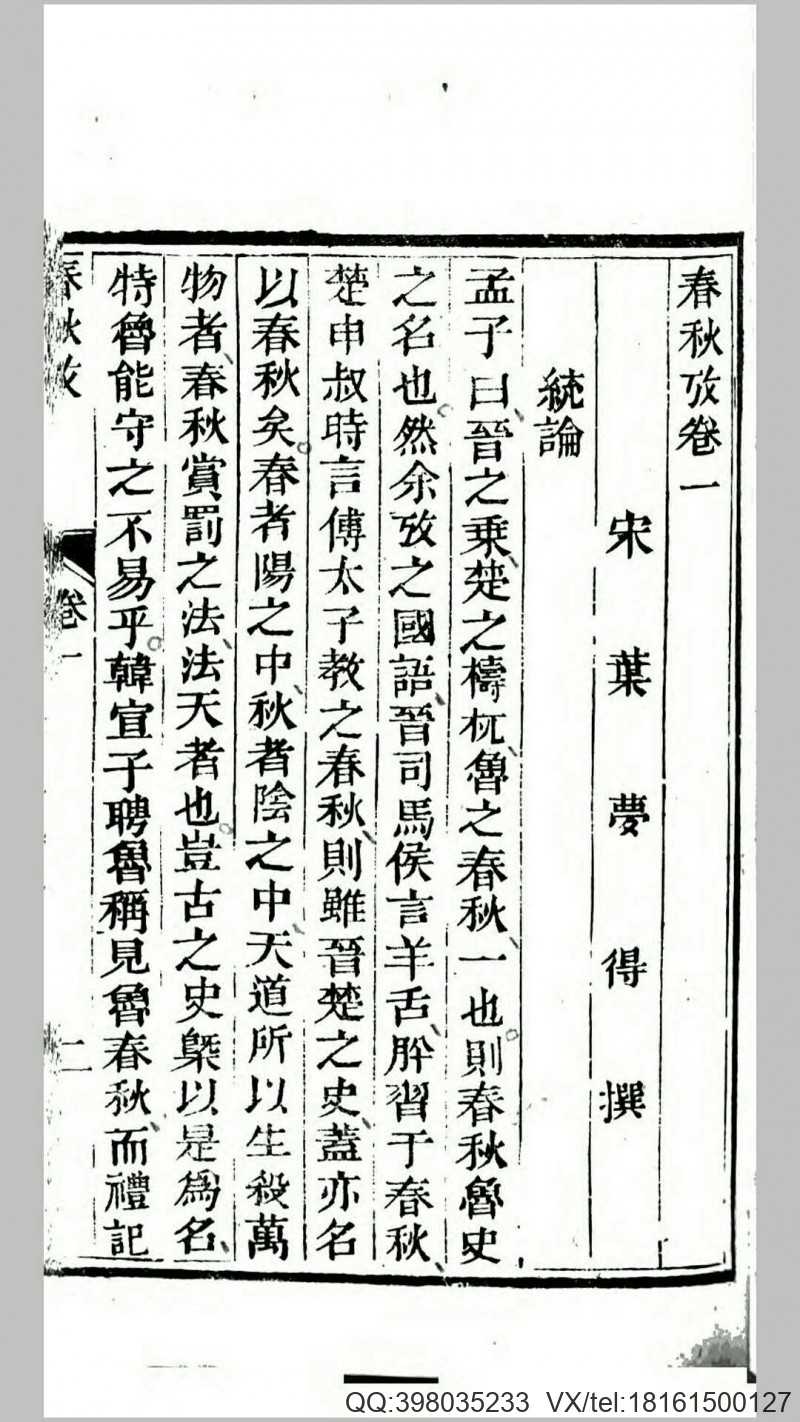 春秋攷卷一
宋葉夢得撰
統論
孟子曰晉之乗楚之檮杌魯之春秋一也則春秋魯史
之名也然余攷之國語晉司馬侯言羊舌肸習于春秋
楚申叔時言傅太子教之春秋則雖晉楚之史蓋亦名
以春秋矣春者陽之中秋者陰之中天道所以生殺萬
物者春秋賞罰之法法天者也豈古之史槩以是爲名
特魯能守之不易乎韓宣子聘魯稱見魯春秋而禮記
春秋攷 卷一 二
QQ:398035233 VX/tel:18161500127